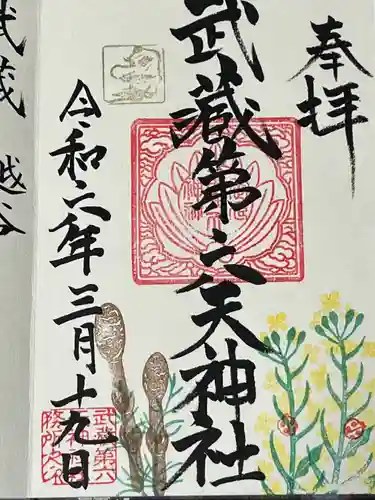 奉拝
武蔵第六天神社
令和六年三月十九日
武蔵 越谷